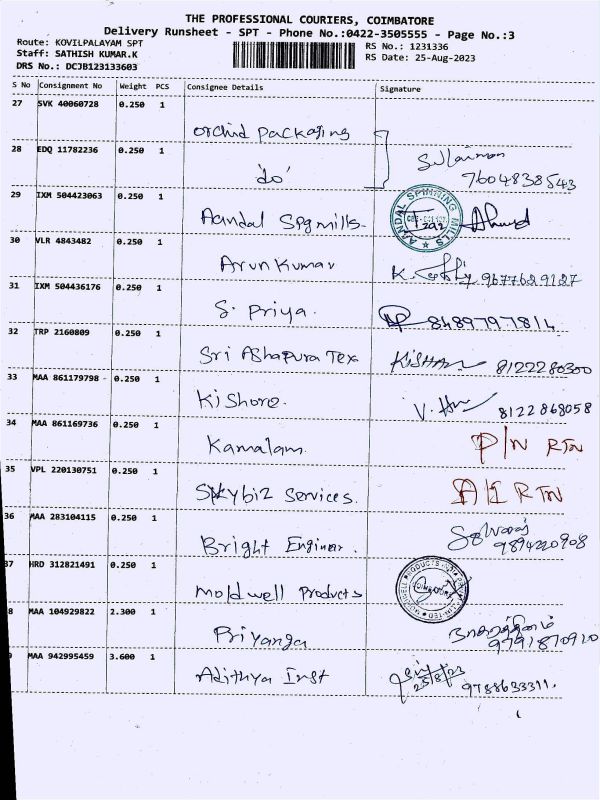 THE PROFESSIONAL COURIERS, COIMBATORE
Delivery Runsheet - SPT - Phone No.:0422-3505555 - Page No.:3
Route: KOVILPALAYAM SPT
RS No.: 1231336
Staff: SATHISH KUMAR.K
RS Date: 25-Aug-2023
DRS No.: DCJB123133603
S No Consignment No Weight PCS Consignee Details Signature
27 SVK 40060728 0.250 1
Orchid Packaging
28 EDQ 11782236 0.250 1 Sulaiman
'do' 7604838543
29 IXM 504423063 0.250 1
Aandal Spg mills. AANDAL SPINNING MILLS
30 VLR 4843482 0.250 1
Arun Kumar 9677629127
31 IXM 504436176 0.250 1
S. Priya. 8489797814
32 TRP 2160809 0.250 1
Sri Ashapura Tex 8122280300
33 MAA 861179798 0.250 1
Kishore. 8122868058
34 MAA 861169736 0.250 1
Kamalam. P/N RTN
35 VPL 220130751 0.250 1
Skybiz Services. RTN
36 MAA 283104115 0.250 1
Bright Enginer. 9894220908
37 HRD 312821491 0.250 1
Moldwell Products
8 MAA 104929822 2.300 1
Priyanga 9791870910
MAA 942995459 3.600 1
Adithya Inst 25/8/23 9788633311.